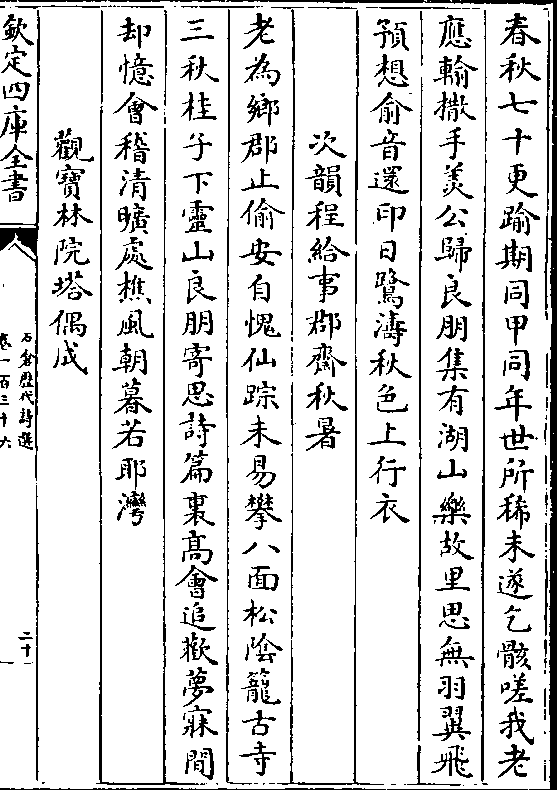 春秋七十更踰期同甲同年世所稀未遂乞骸嗟我老
應輸撒手羡公歸良朋集有湖山樂故里思無羽翼飛
預想俞音還印日鷺濤秋色上行衣
次韻程給事郡齋秋暑
老為鄉郡止偷安自愧仙踪未易攀八面松陰籠古寺
三秋桂子下靈山良朋寄思詩篇裏髙會追歡夢寐間
却憶會稽清曠處樵風朝暮若耶灣
觀寶林院塔偶成
欽定四庫全書
石倉歷代詩選
卷一百三十六
二十